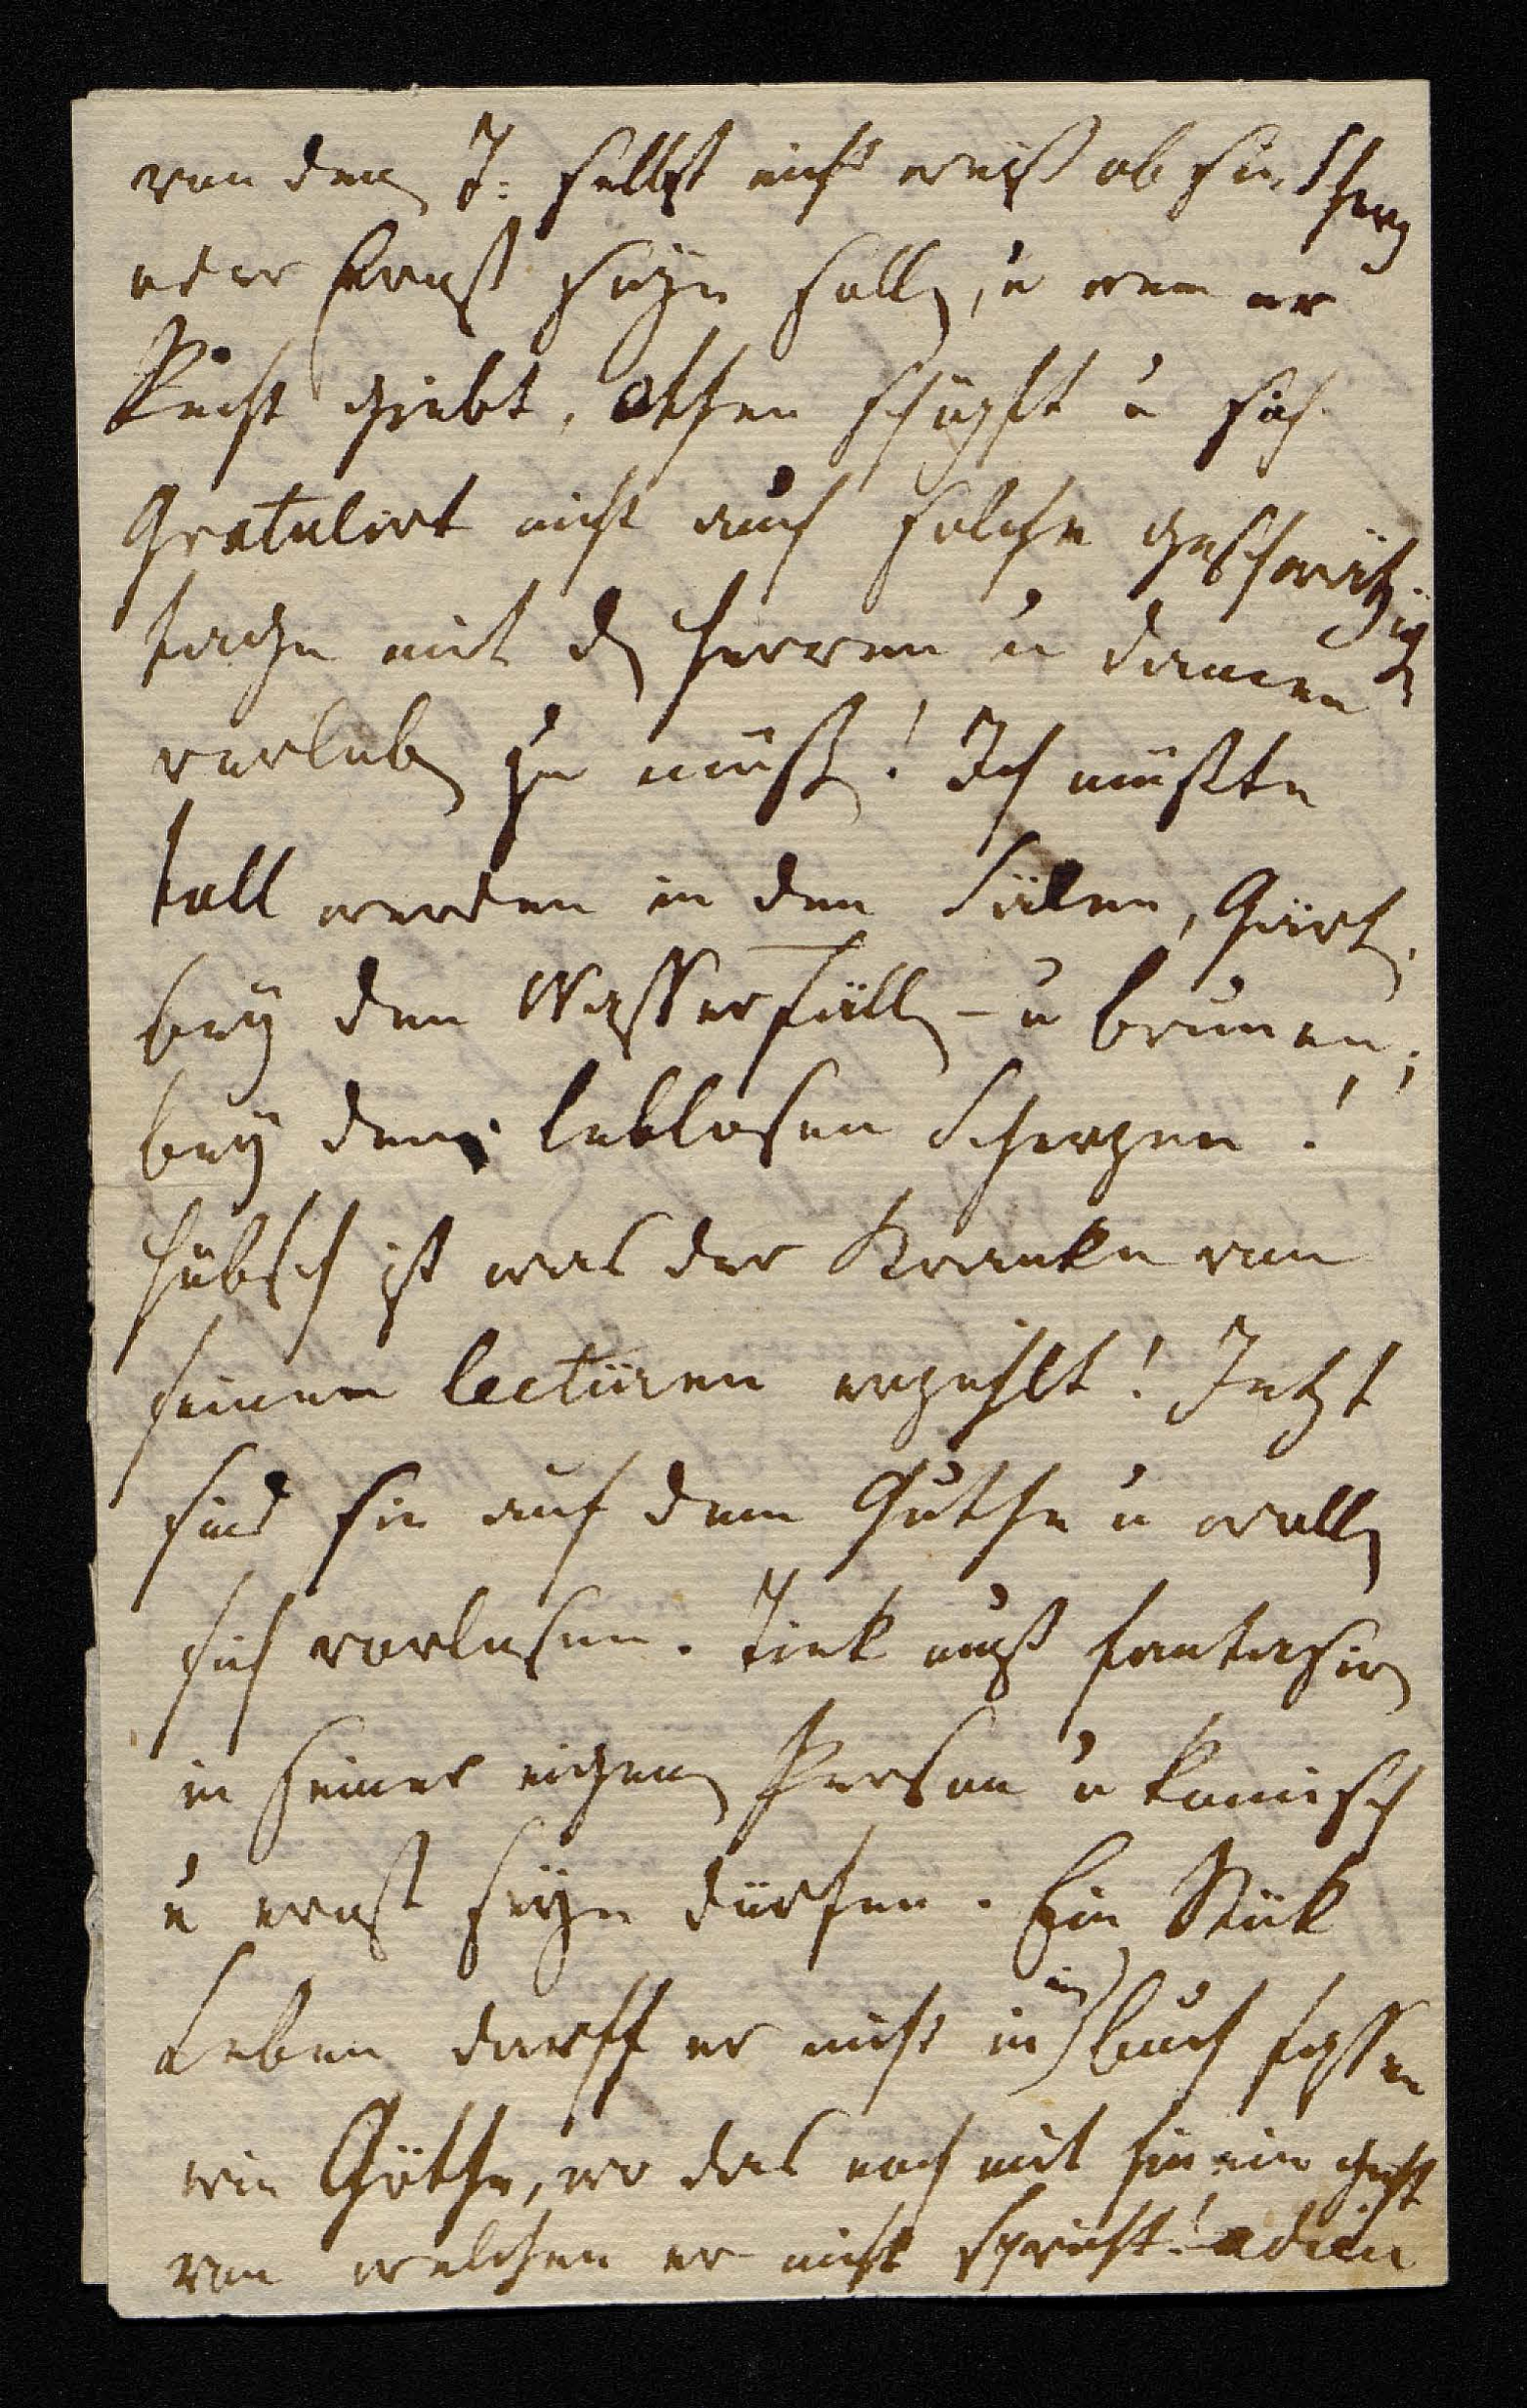 von den T: selbst nicht weiß ob sie Scherz
oder Ernst seyn sollen, u wem er
Recht giebt. Athem schöpft u sich
Gratulirt nicht auch solche geschwätzigen
tage mit den Herren u damen
verleben zu müßen! Ich müßte
toll werden in den Sälen, Gärten,
bey den Wasserfällen - u brunnen;
bey den leblosen Scherzen!
Hübsch ist was der Kranke von
seinen lectüren erzehlt! Jetzt
sind sie auf dem Guthe u wollen
sich vorlesen. Tiek muß fantasiren
in seiner eigenen Person u komisch
u ernst seyn dürfen. Ein Stük
Leben darff er nicht in ein buch fassen
wie Göthe, wo das noch mit hinein geht
von welchen er nicht spricht! adieu